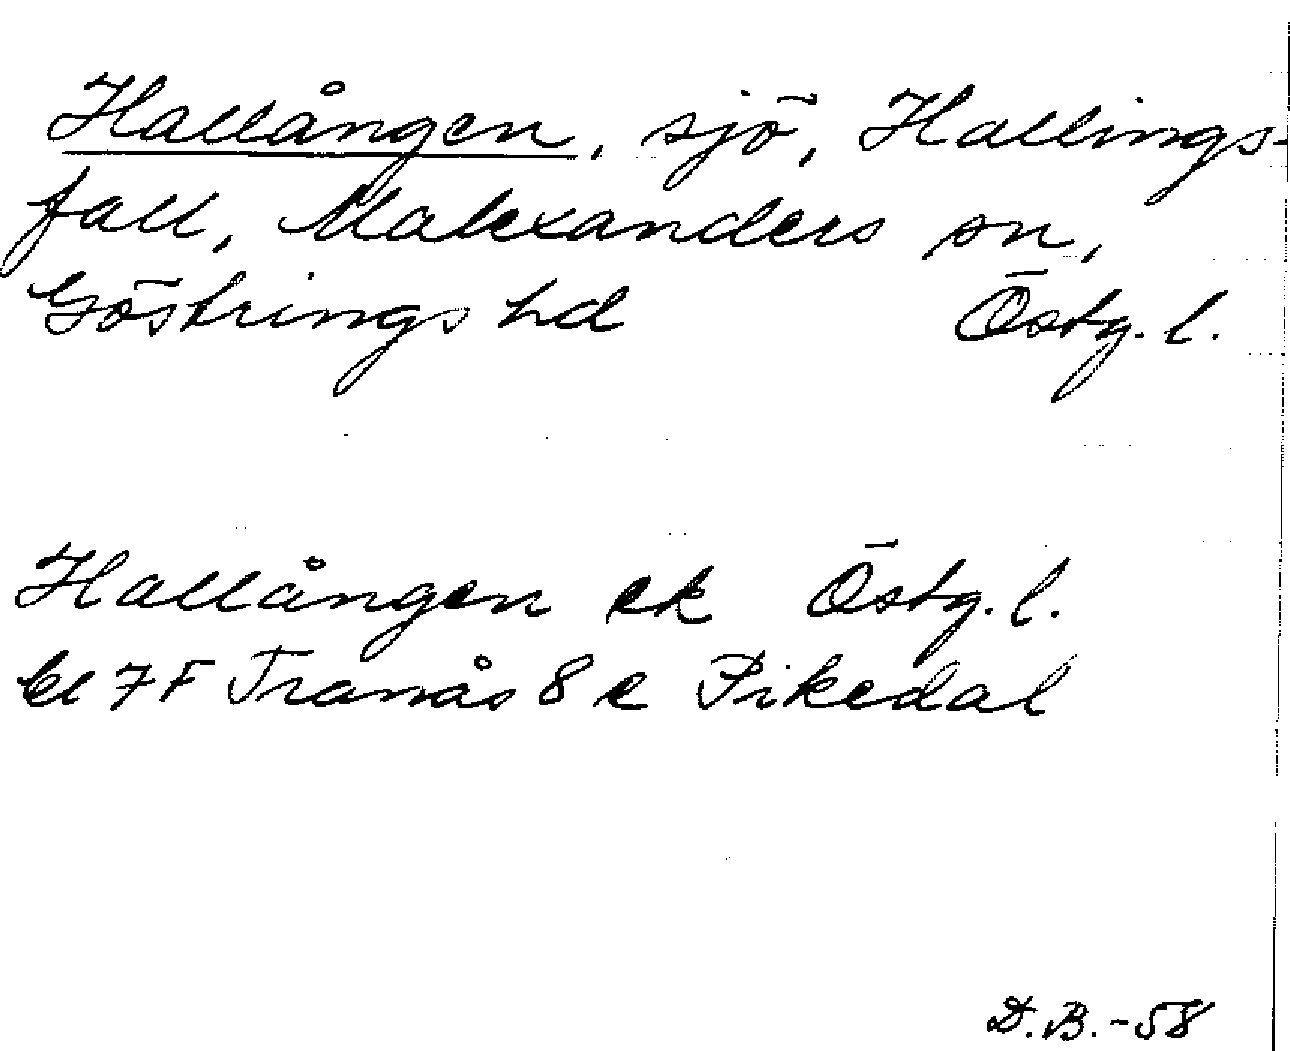 Hallången, sjö, Hallings-
fall, Malexanders sn,
Göstrings hd Östg. l.
Hallången ek Östg. l.
bl 7F Tranås 8 e Pikedal
D.B.-58